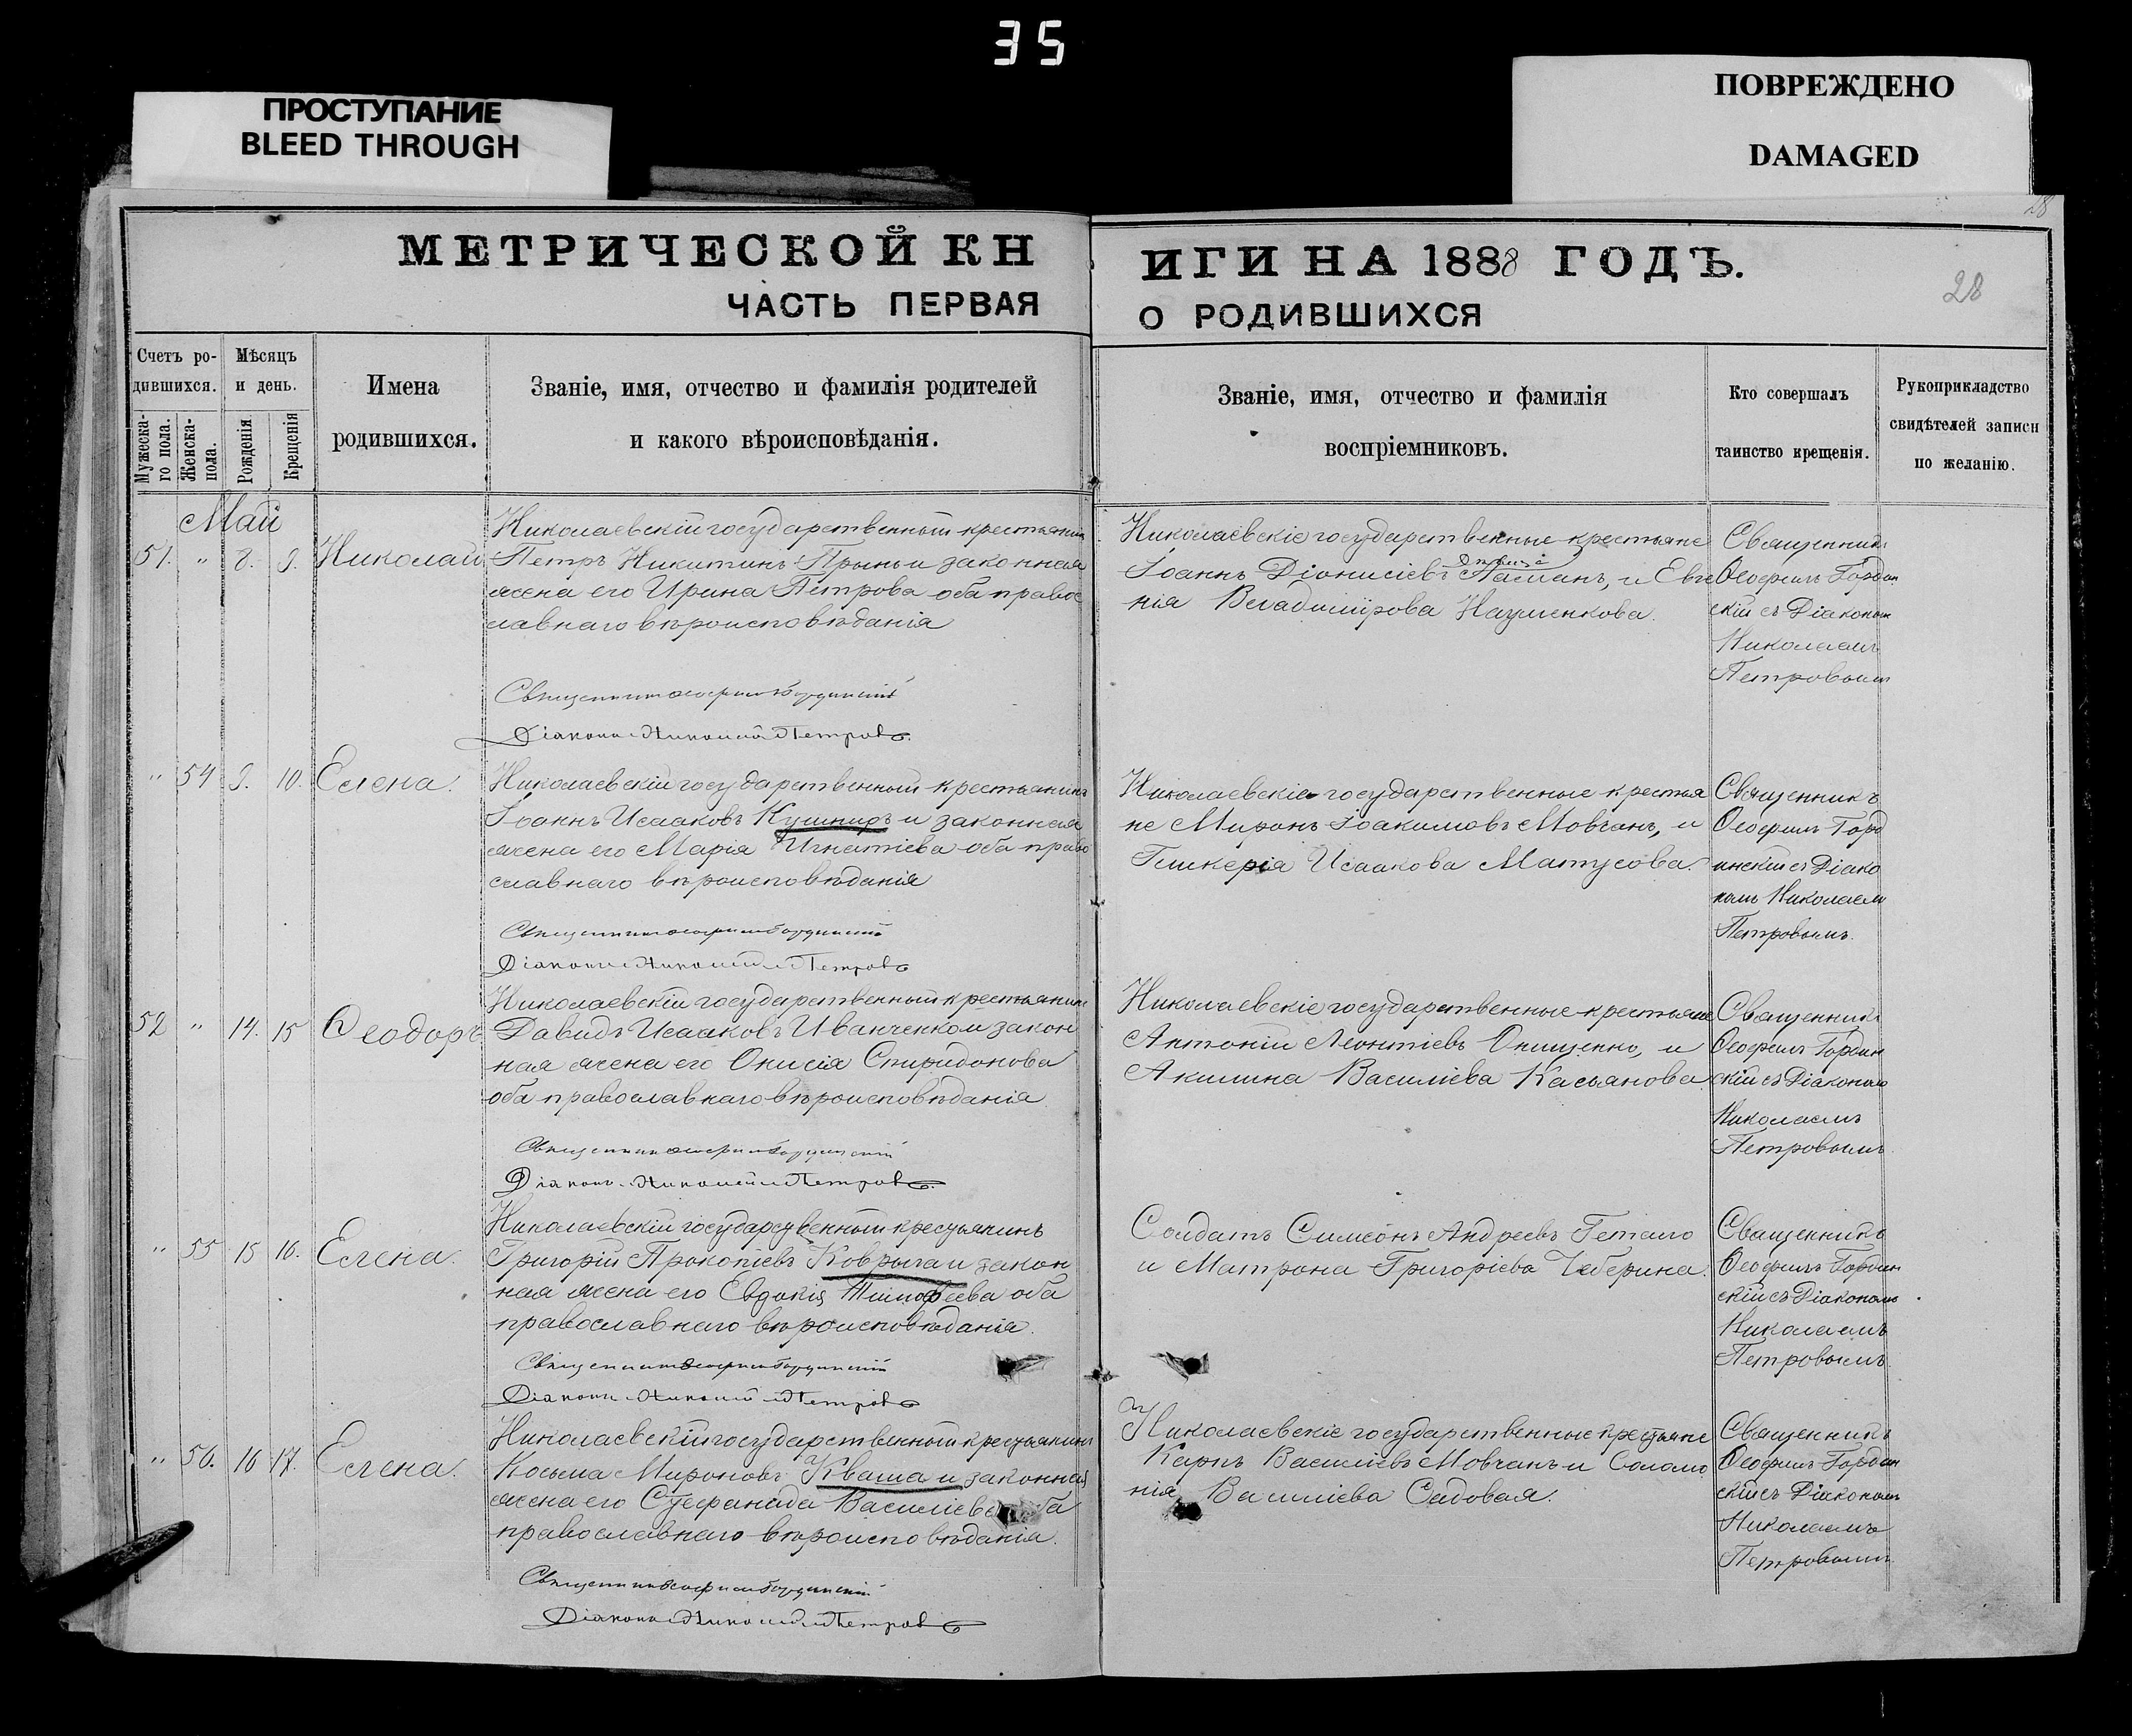 35
ПРОСТУПАНИЕ
BLEED THROUGH
ПОВРЕЖДЕНО
DAMAGED
28
МЕТРИЧЕСКОЙ КН
ИГИ НА 1888 ГОДЪ.
28
ЧАСТЬ ПЕРВАЯ
О РОДИВШИХСЯ
Счетъ ро-
дившихся.
Мужеска-
го пола.
Женска-
пола.
Мѣсяцъ
и день.
Рожденія
Крещенія
Имена
родившихся.
Званіе, имя, отчество и фамилія родителей
и какого вѣроисповѣданія.
Званіе, имя, отчество и фамилія
воспріемниковъ.
Кто совершалъ
таинство крещенія.
Рукоприкладство
свидѣтелей записи
по желанію.
Май
51. " 8. 9. Николай
Николаевскій государственный крестьянинъ
Петръ Никитинъ и законная
жена его Ирина Петрова оба правос
лавнаго вѣроисповѣданія
Священникъ Ѳеофилъ Гординскій
Діаконъ Николай Петровъ
Николаевскіе государственные крестьяне
Іоаннъ Діонисіевъ и Евге
нія Владимірова Науменкова.
Священникъ
Ѳеофилъ Гордин
скій съ Діакономъ
Николаемъ
Петровымъ
" 54 9. 10. Елена.
Николаевскій государственный крестьянинъ
Іоаннъ Исааковъ Кушниръ и законная
жена его Марія Игнатіева оба право
славнаго вѣроисповѣданія
Священникъ Ѳеофилъ Гординскій
Діаконъ Николай Петровъ
Николаевскіе государственные крестья
не Миронъ Іоакимовъ Мовчанъ, и
Гликерія Исаакова Матусова.
Священникъ
Ѳеофилъ Горд
инскій съ Діако
номъ Николаемъ
Петровымъ.
52 " 14. 15 Ѳеодоръ
Николаевскій государственный крестьянинъ
Давидъ Исааковъ Иванченко и закон
ная жена его Онисія Спиридонова
оба православнаго вѣроисповѣданія
Священникъ Ѳеофилъ Гординскій
Діаконъ Николай Петровъ
Николаевскіе государственные крестьяне
Антоній Леонтіевъ Онищенко, и
Акилина Василіева Касьянова.
Священникъ
Ѳеофилъ Гордин
скій съ Діакономъ
Николаемъ
Петровымъ
" 55 15 16. Елена.
Николаевскій государственный крестьянинъ
Григорій Прокопіевъ Коврыга и закон
ная жена его Евдокія Тимофеева оба
православнаго вѣроисповѣданія.
Священникъ Ѳеофилъ Гординскій
Діаконъ Николай Петровъ
Солдатъ Симеонъ Андреевъ Гетало
и Матрона Григоріева Чеберина.
Священникъ
Ѳеофилъ Гордин
скій съ Діакономъ
Николаемъ
Петровымъ.
" 56. 16 17. Елена.
Николаевскій государственный крестьянинъ
Косьма Мироновъ Кваша и законная
жена его Стефанида Василіева оба
православнаго вѣроисповѣданія.
Священникъ Ѳеофилъ Гординскій
Діаконъ Николай Петровъ
Николаевскіе государственные крестьяне
Карпъ Василіевъ Мовчанъ и Соломо
нія Василіева Садовая.
Священникъ
Ѳеофилъ Гордин
скій съ Діакономъ
Николаемъ
Петровымъ